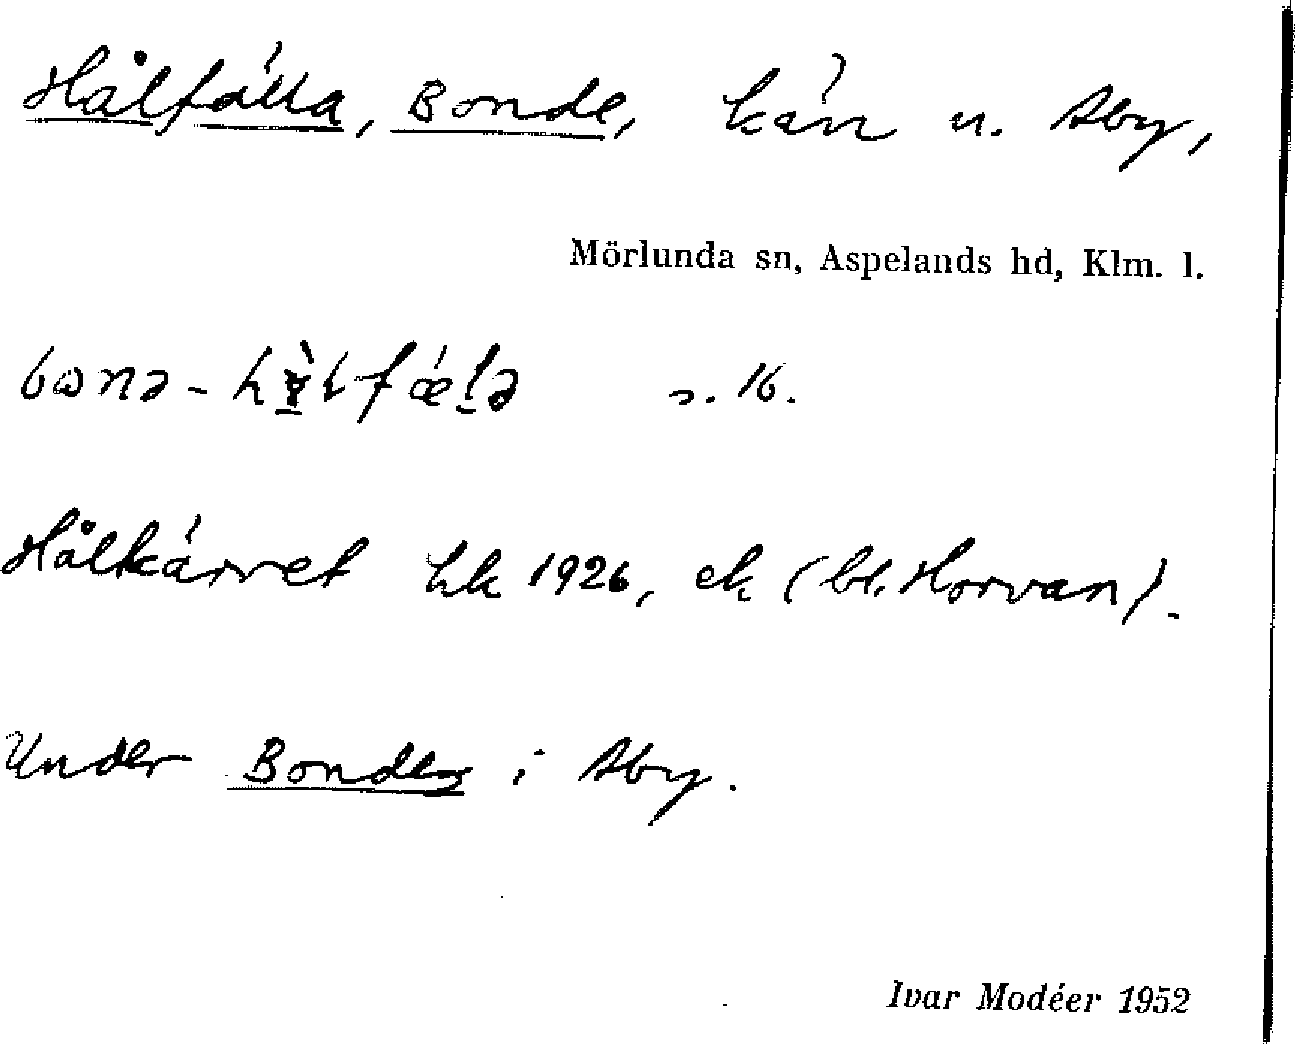 Hålfälla, Bonde, kärr u. Åby,
Mörlunda sn, Aspelands hd, Klm. l.
s. 16.
Hålkärret hk 1926, ek (bl. Horvan).
Under Bondes i Åby.
Ivar Modéer 1952